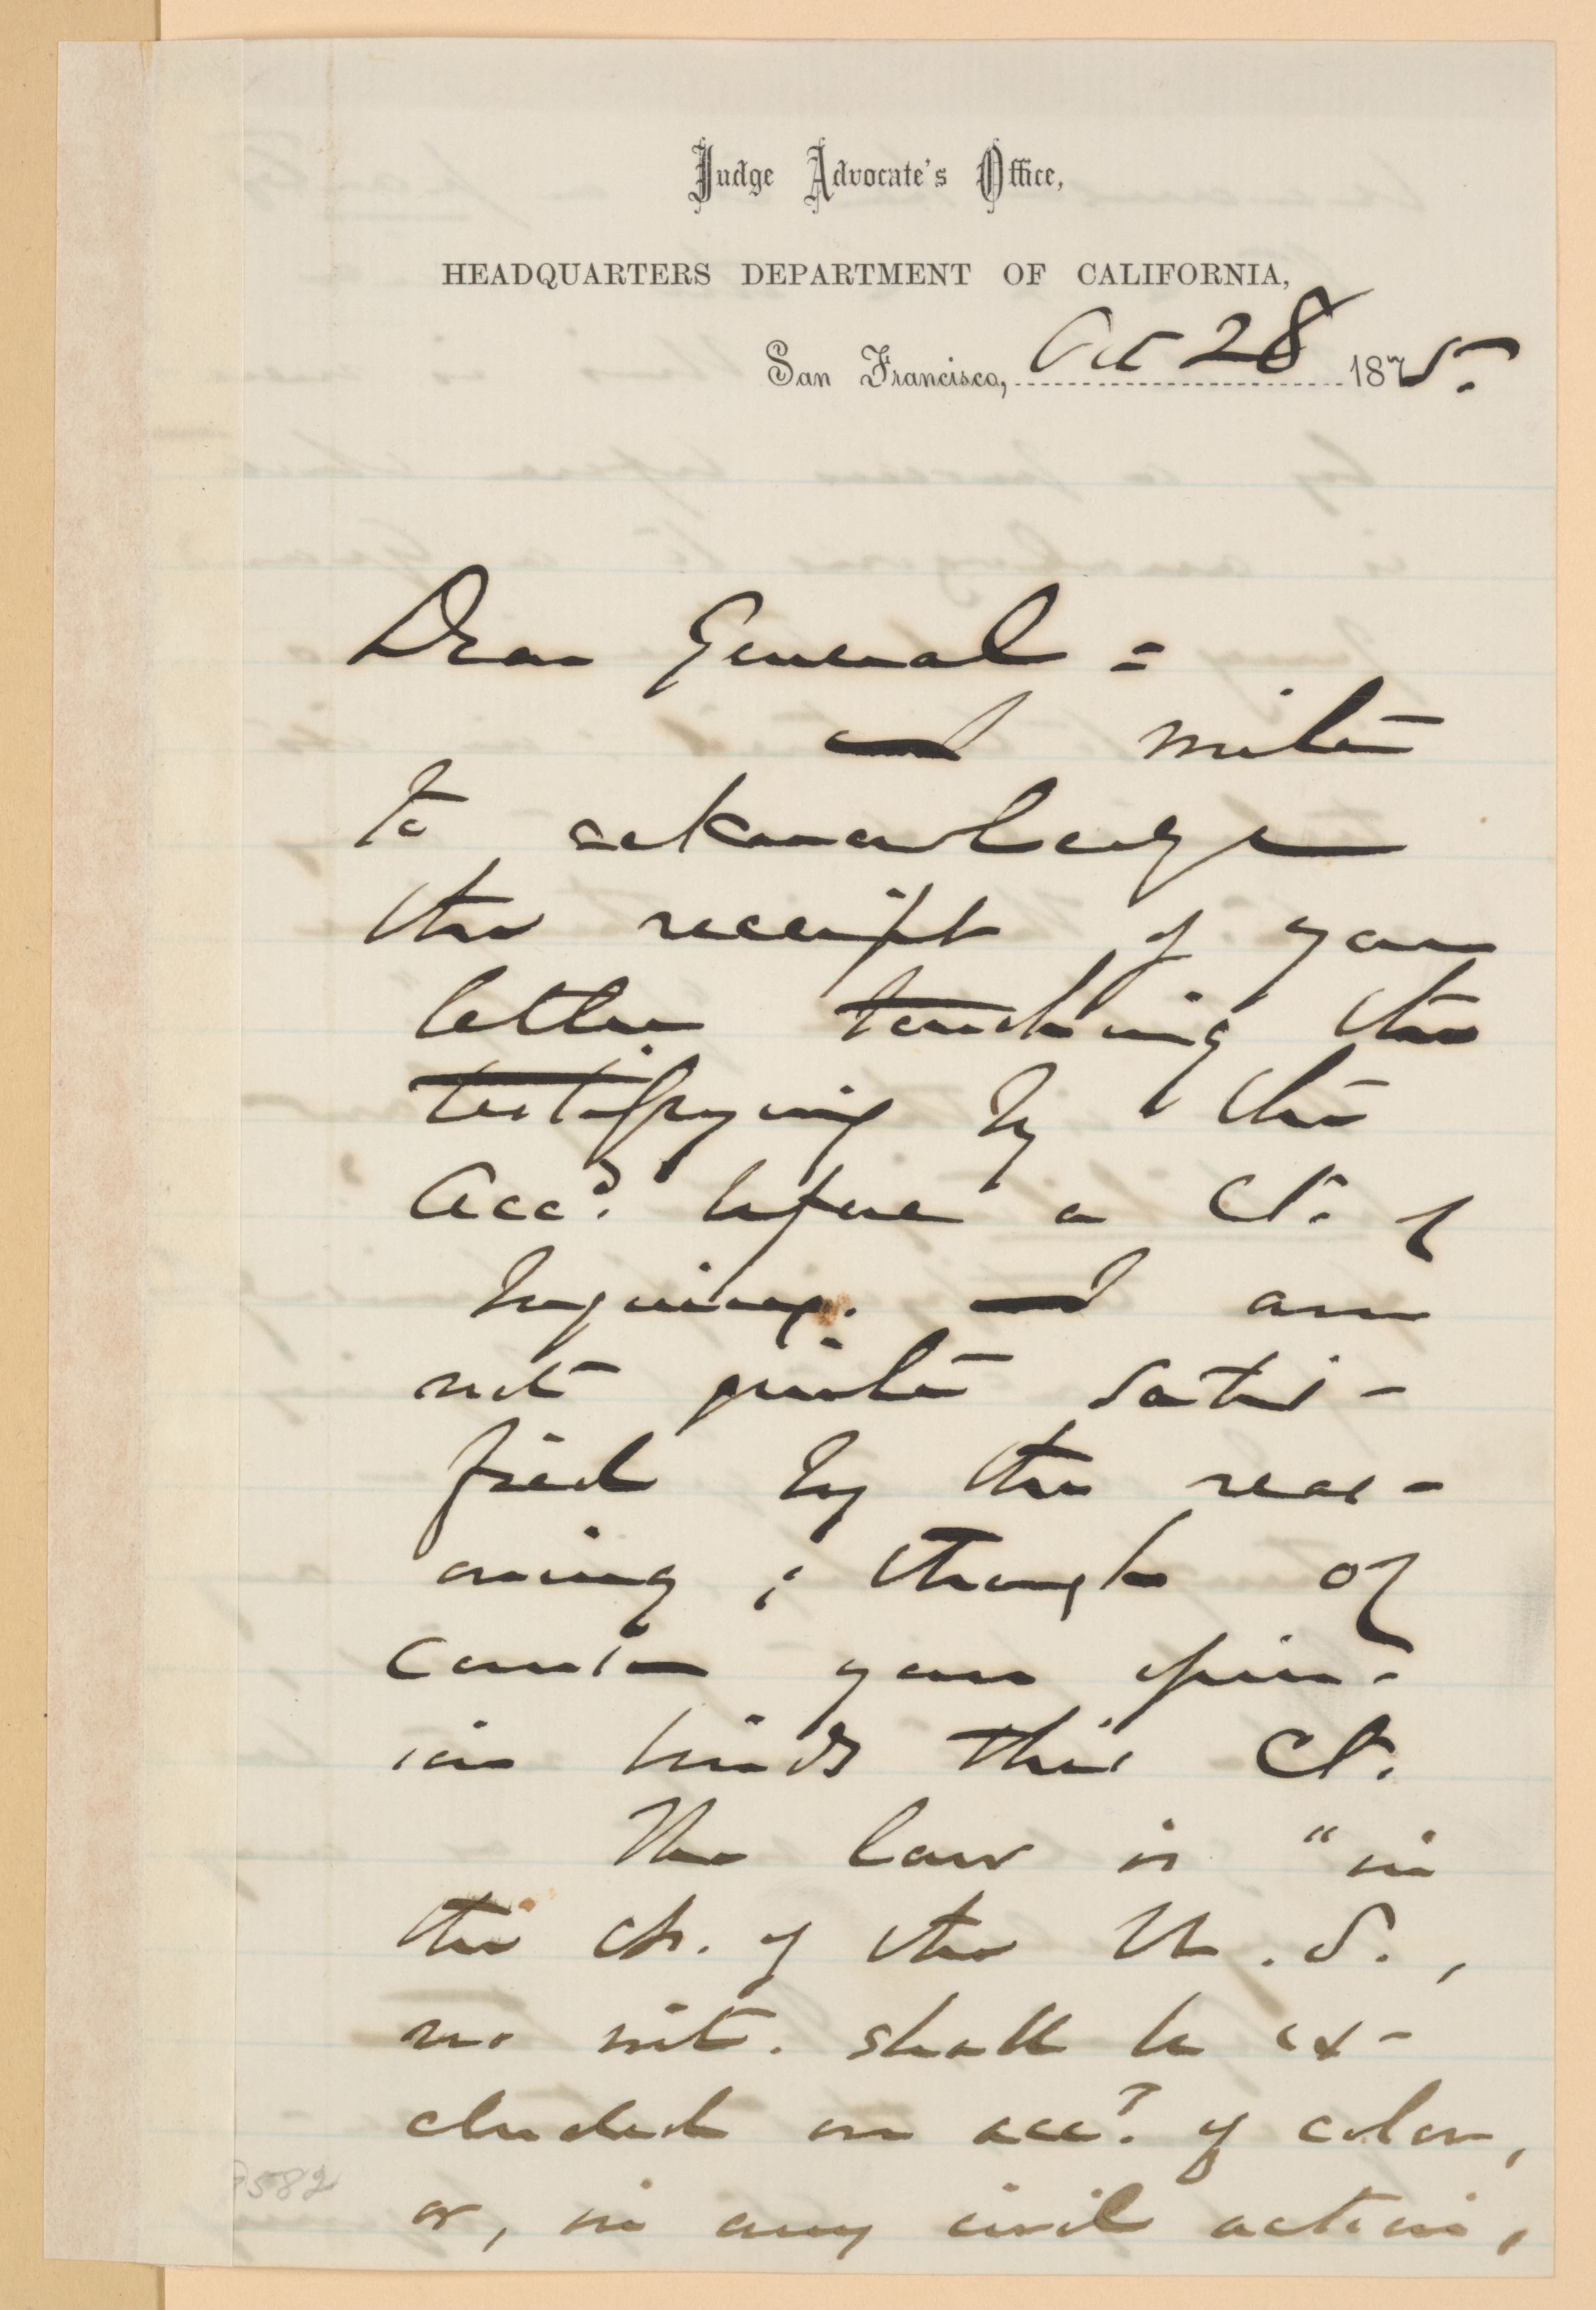 Judge Advocate's Office,
HEADQUARTERS DEPARTMENT OF CALIFORNIA,
San Francisco, Oct 28 1875.
Dear General =
I write
to acknowledge
the receipt of your
letter touching the
testifying by the
Acc^d. before a Ct. of
Inquiry. I am
not quite satis-
fied by the reas-
oning; though of
course your opin-
ion binds this Ct.
The law is "in
the cts. of the U.S.,
no wit. shall be ex-
cluded on acc^t. of color,
or, in any civil action,
9582